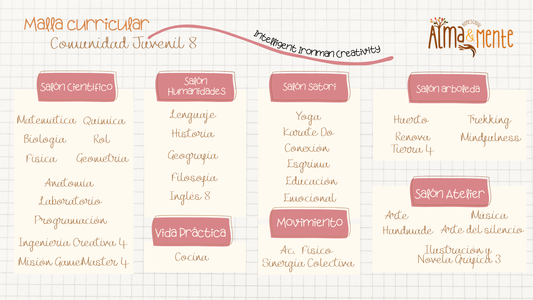 Malla curricular
Comunidad Juvenil 8
Intelligent Ironman Creativity
Alma&Mente
Salón Científico
Matemática Química
Biología Rol
Física Geometría
Anatomía
Laboratorio
Programación
Ingeniería Creativa 4
Misión GameMaster 4
Salón Humanidades
Lenguaje
Historia
Geografía
Filosofía
Inglés 8
Vida Práctica
Cocina
Salón Satori
Yoga
Karate Do
Conexión
Esgrima
Educación
Emocional
Movimiento
Ac. Físico
Sinergia Colectiva
Salón arboleda
Huerto Trekking
Renova Mindfulness
Tierra 4
Salón Atelier
Arte Música
Handmade Arte del silencio
Ilustración y
Novela Gráfica 3